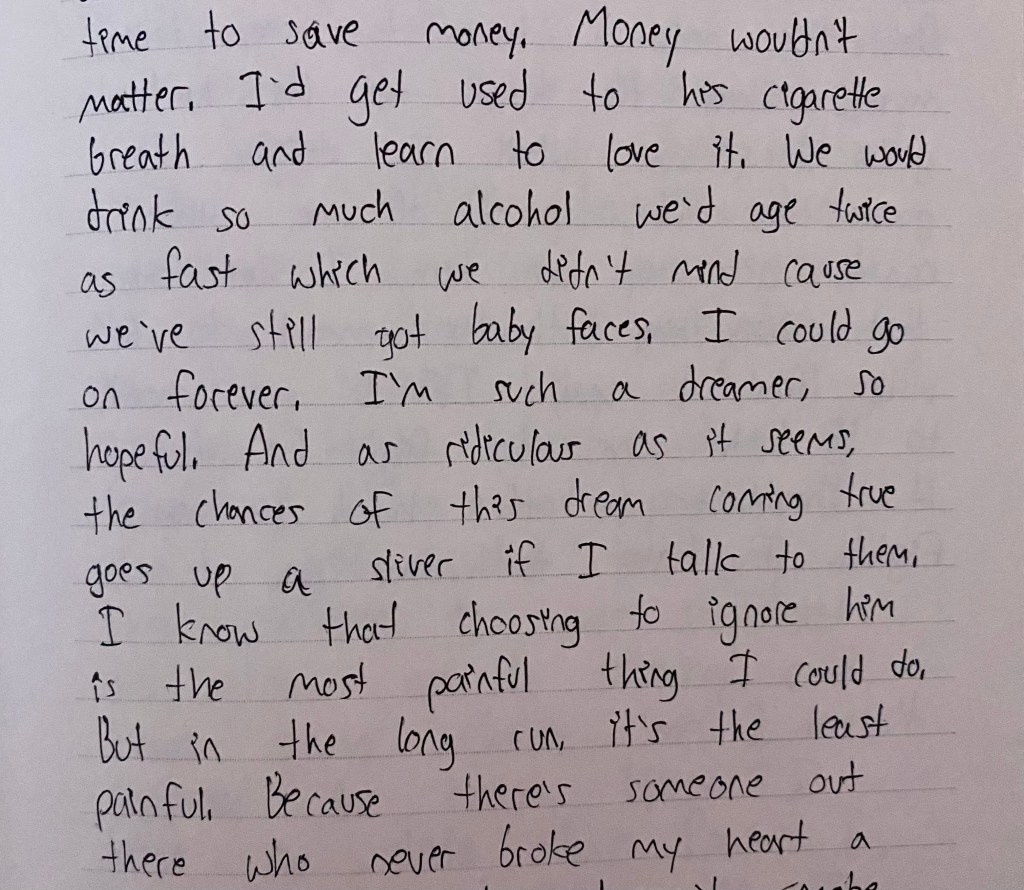 time to save money. Money wouldn't
matter. I'd get used to his cigarette
breath and learn to love it. We would
drink so much alcohol we'd age twice
as fast which we didn't mind cause
we've still got baby faces. I could go
on forever. I'm such a dreamer, so
hopeful. And as ridiculous as it seems,
the chances of this dream coming true
goes up a sliver if I talk to them.
I know that choosing to ignore him
is the most painful thing I could do.
But in the long run, it's the least
painful. Because there's someone out
there who never broke my heart a